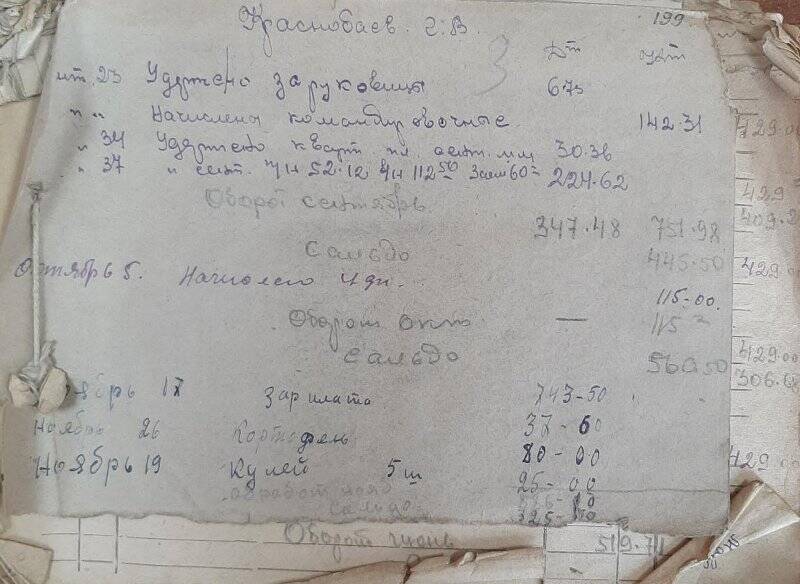 199
Краснобаев. Г.В.
Дт Кдт
инт. 23 Удержено за руковицы 6.75
" " Начислены командировочные. 142.31
" 34 Удержено кварт пл. сент. м-ц 30.36
" 37 " сент. п/н 52.12 112 50 Заим 60= 224.62
Оборот сентябрь 347.48 751.98
Сальдо 445.50
Октябрь 5. Начислено 4 дн. 115-00.
Оборот окт — 115=
Сальдо 560 50
ябрь 17 зарплата 743-50
Ноябрь 26 Кортофель 37-60
Ноябрь 19 Кулей 5 ш 80-00
25-00
Сальдо
Оборот 519.71
429.00
429
409.2
429.0
429.00
306.6
429.00